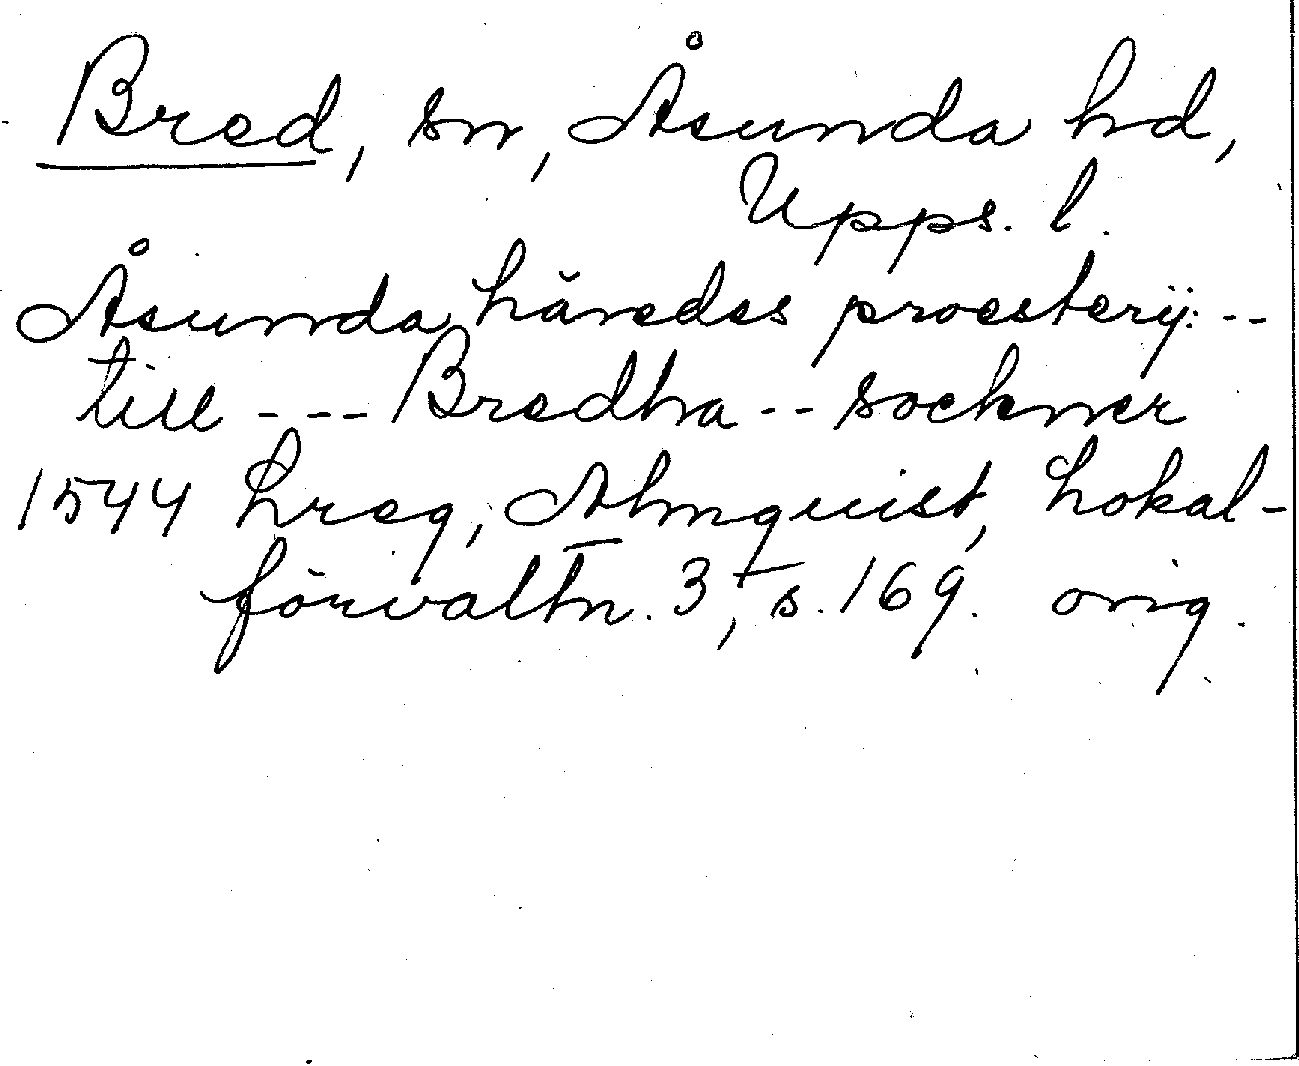 Bred, sn, Åsunda hd,
Upps. l.
Åsunda håredes proesterij: --
till --- Bredha -- sockner
1544 hreg, Almquist, Lokal-
förvaltn. 3, s. 169. orig.